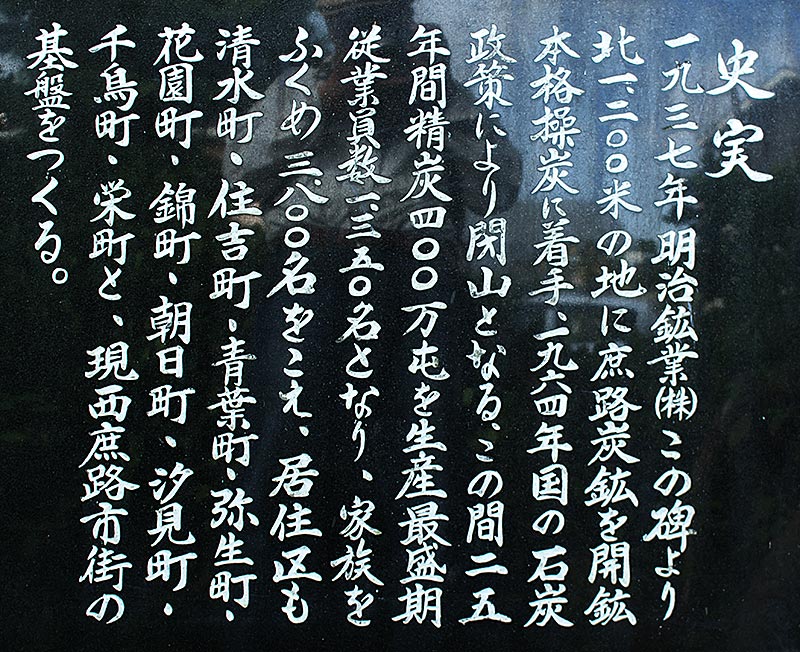 史実
一九三七年明治鉱業㈱この碑より
北一、二〇〇米の地に庶路炭鉱を開鉱
本格操炭に着手、一九六四年国の石炭
政策により閉山となる、この間二五
年間精炭四〇〇万屯を生産最盛期
従業員数一、三五〇名となり、家族を
ふくめ三、八〇〇名をこえ、居住区も
清水町、住吉町、青葉町、弥生町、
花園町、錦町、朝日町、汐見町、
千鳥町、栄町と、現西庶路市街の
基盤をつくる。